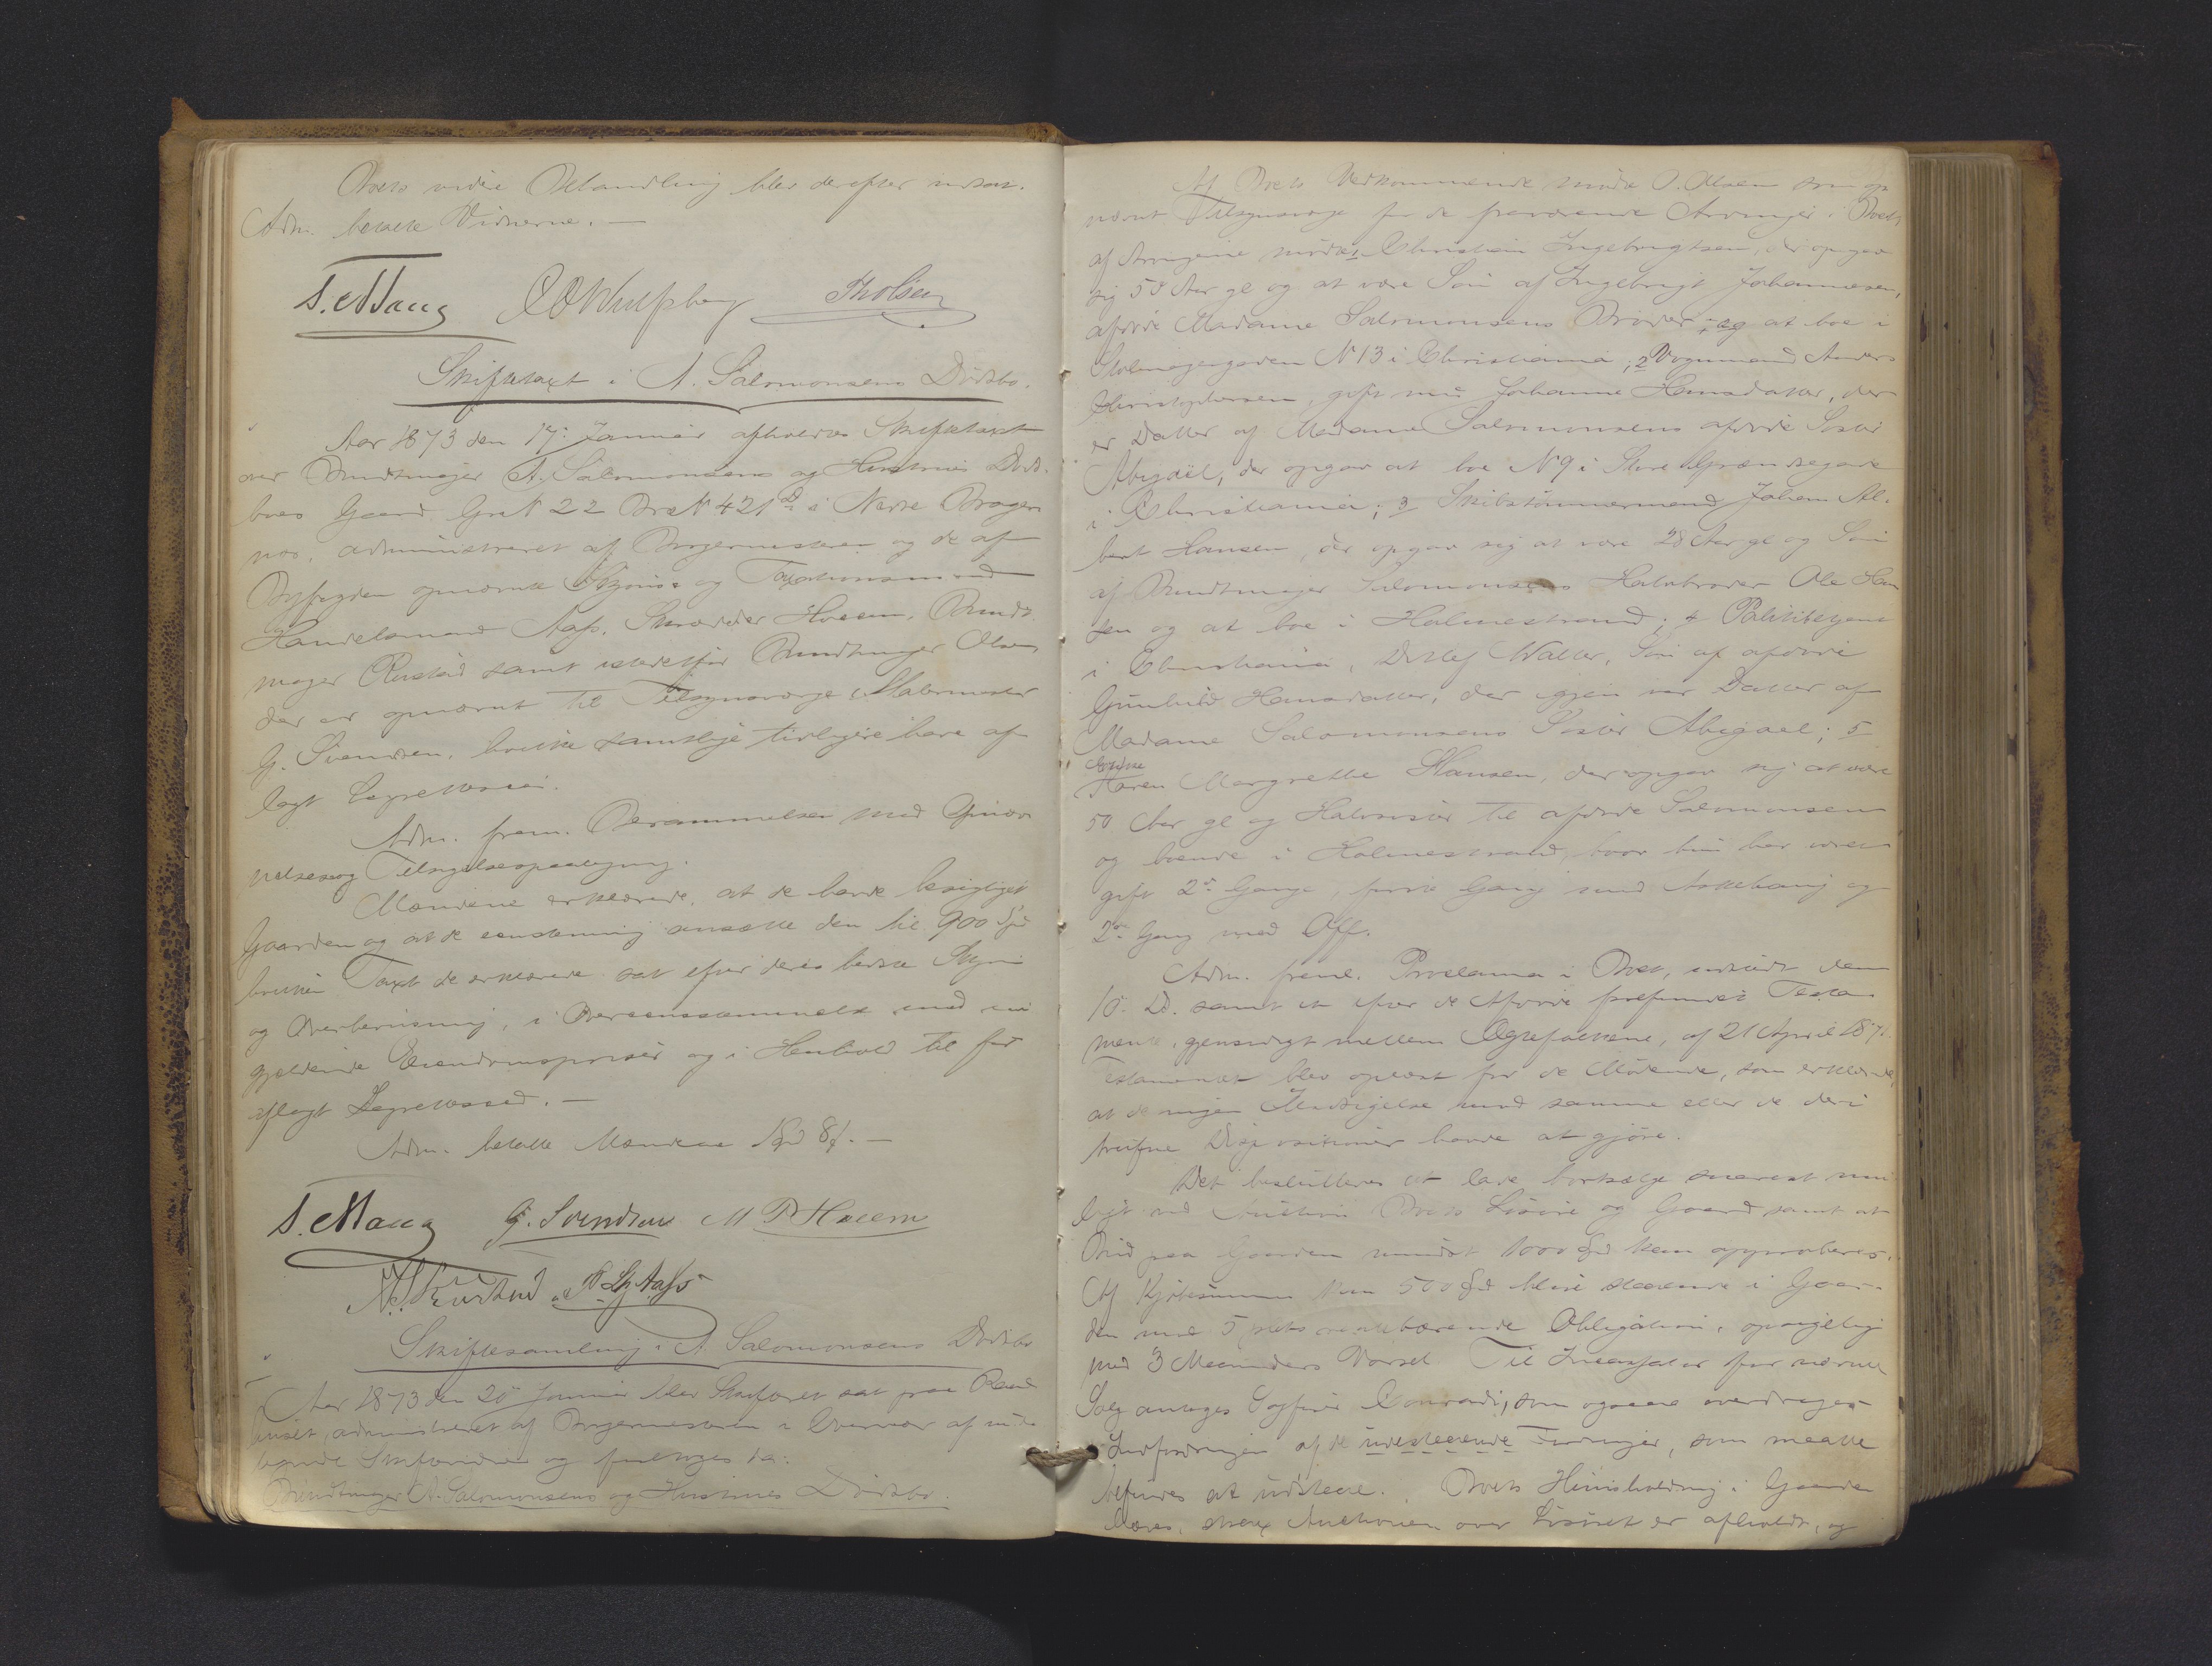 Boets videre Behandling blev derefter udsat.
Adm. betalte Vidnerne. —
S. Maug Tholsen
Skiftetaxt i A. Salomonsens Dödsbo.
Aar 1873 den 17. Januar afholdtes Skiftetaxt
over Bundtmager A. Salomonsens og Hustrues Döds-
boes Gaard Gr.N 22 Br.N 421 D i Nedre Brager-
nœs, administreret af Borgermesteren og de af
Byfogden opnævnte Skjöns- og Taxationsmænd
Handelsmand Aass, Skrædder Hoëem, Bundt-
mager Rustad samt istedetfor Bundtmager Olsen
der er opnævnt til Tilsynsværge, Malermester
G. Svendsen, hvilke samtlige tidligere have af-
lagt Lagrettesed.
Adm. frem. Berammelsen med Opnæv-
nelses og Tilsigelsespaategning.
Mændene erklærede, at de havde besigtiget
Gaarden og at de eenstemmig ansætte den til 900 Spd
hvilken Taxt de erklærede sat efter deres bedste Skjön
og Overbeviisning, i Overeensstemmelse med nu
gjældende Eiendomspriser og i Henhold til før
aflagt Lagrettesed. —
Adm. betalte Mændene 1 Spd 8 s. —
S. Maug G. Svendsen M P Hoëem
A. Rustad Aass
Skiftesamling i A. Salomonsens Dödsbo
Aar 1873 den 20 Januar blev Skifteret sat paa Raad-
huset, administreret af Borgermesteren i Overvær af under-
tegnede Skiftevidner og foretoges da:
Bundtmager A. Salomonsens og Hustrues Dödsbo.
Af Boets Vedkommende mödte O. Olsen som op-
nævnt Tilsynsværge for de fraværende Arvinger i Boet,
af Arvingerne mödte 1 Christian Ingebrigtsen, der opgav
sig 50 Aar gl og at være Sön af Ingebrigt Johannesen,
afdöde Madame Salomonsens Broder, og at boe i
Stolmagergaden N 13 i Christiania; 2 Vognmand Anders
Christophersen, gift med Johanne Hansdatter, der
er Datter af Madame Salomonsens afdöde Söster
Abigael, der opgav at boe N 9 i Store Grændsegade
i Christiania; 3 Skibstömmermand Johan Al-
bert Hansen, der opgav sig at være 28 Aar gl og Sön
af Bundtmager Salomonsens Halvbroder Ole Han-
sen og at boe i Holmestrand; 4 Politibetjent
i Christiania, Detlef Walter, Sön af afdöde
Gunhild Hansdatter, der igjen var Datter af
Madame Salomonsens Söster Abigael; 5
Enke
Karen Margrethe Hansen, der opgav sig at være
50 Aar gl og Halvsöster til afdöde Salomonsen
og boende i Holmestrand, hvor hun har været
gift 2de Gange, förste Gang med Askehaug og
2den Gang med Off.
Adm. freml. Proclama i Boet, udstedt den
10. D. samt et efter de Afdöde forefundet Testa-
mente, gjensidigt mellem Ægtefolkene, af 21 April 1871.
Testamentet blev oplæst for de Mödende, som erklærede,
at de ingen Indsigelse mod samme eller de deri
trufne Dispositioner havde at gjöre.
Det besluttedes at lade bortsælge snarest mu-
ligt ved Auction Boets Lösöre og Gaard samt at
Bud paa Gaarden mindst 1000 Spd kan approberes.
Af Kjöbesummen kan 500 Spd blive staaende i Gaar-
den mod 5 pCts rentebærende Obligation, opsigelig
med 3 Maaneders Varsel. Til Incassator for nævnte
Salg antages Sagförer Conradi, som ogsaa overdrages
Indfordringen af de udestaaende Fordringer, som maatte
befindes at udstaae. Boets Huusholdning i Gaarden
hæves, strax Auctionen over Lösöret er afholdt, og